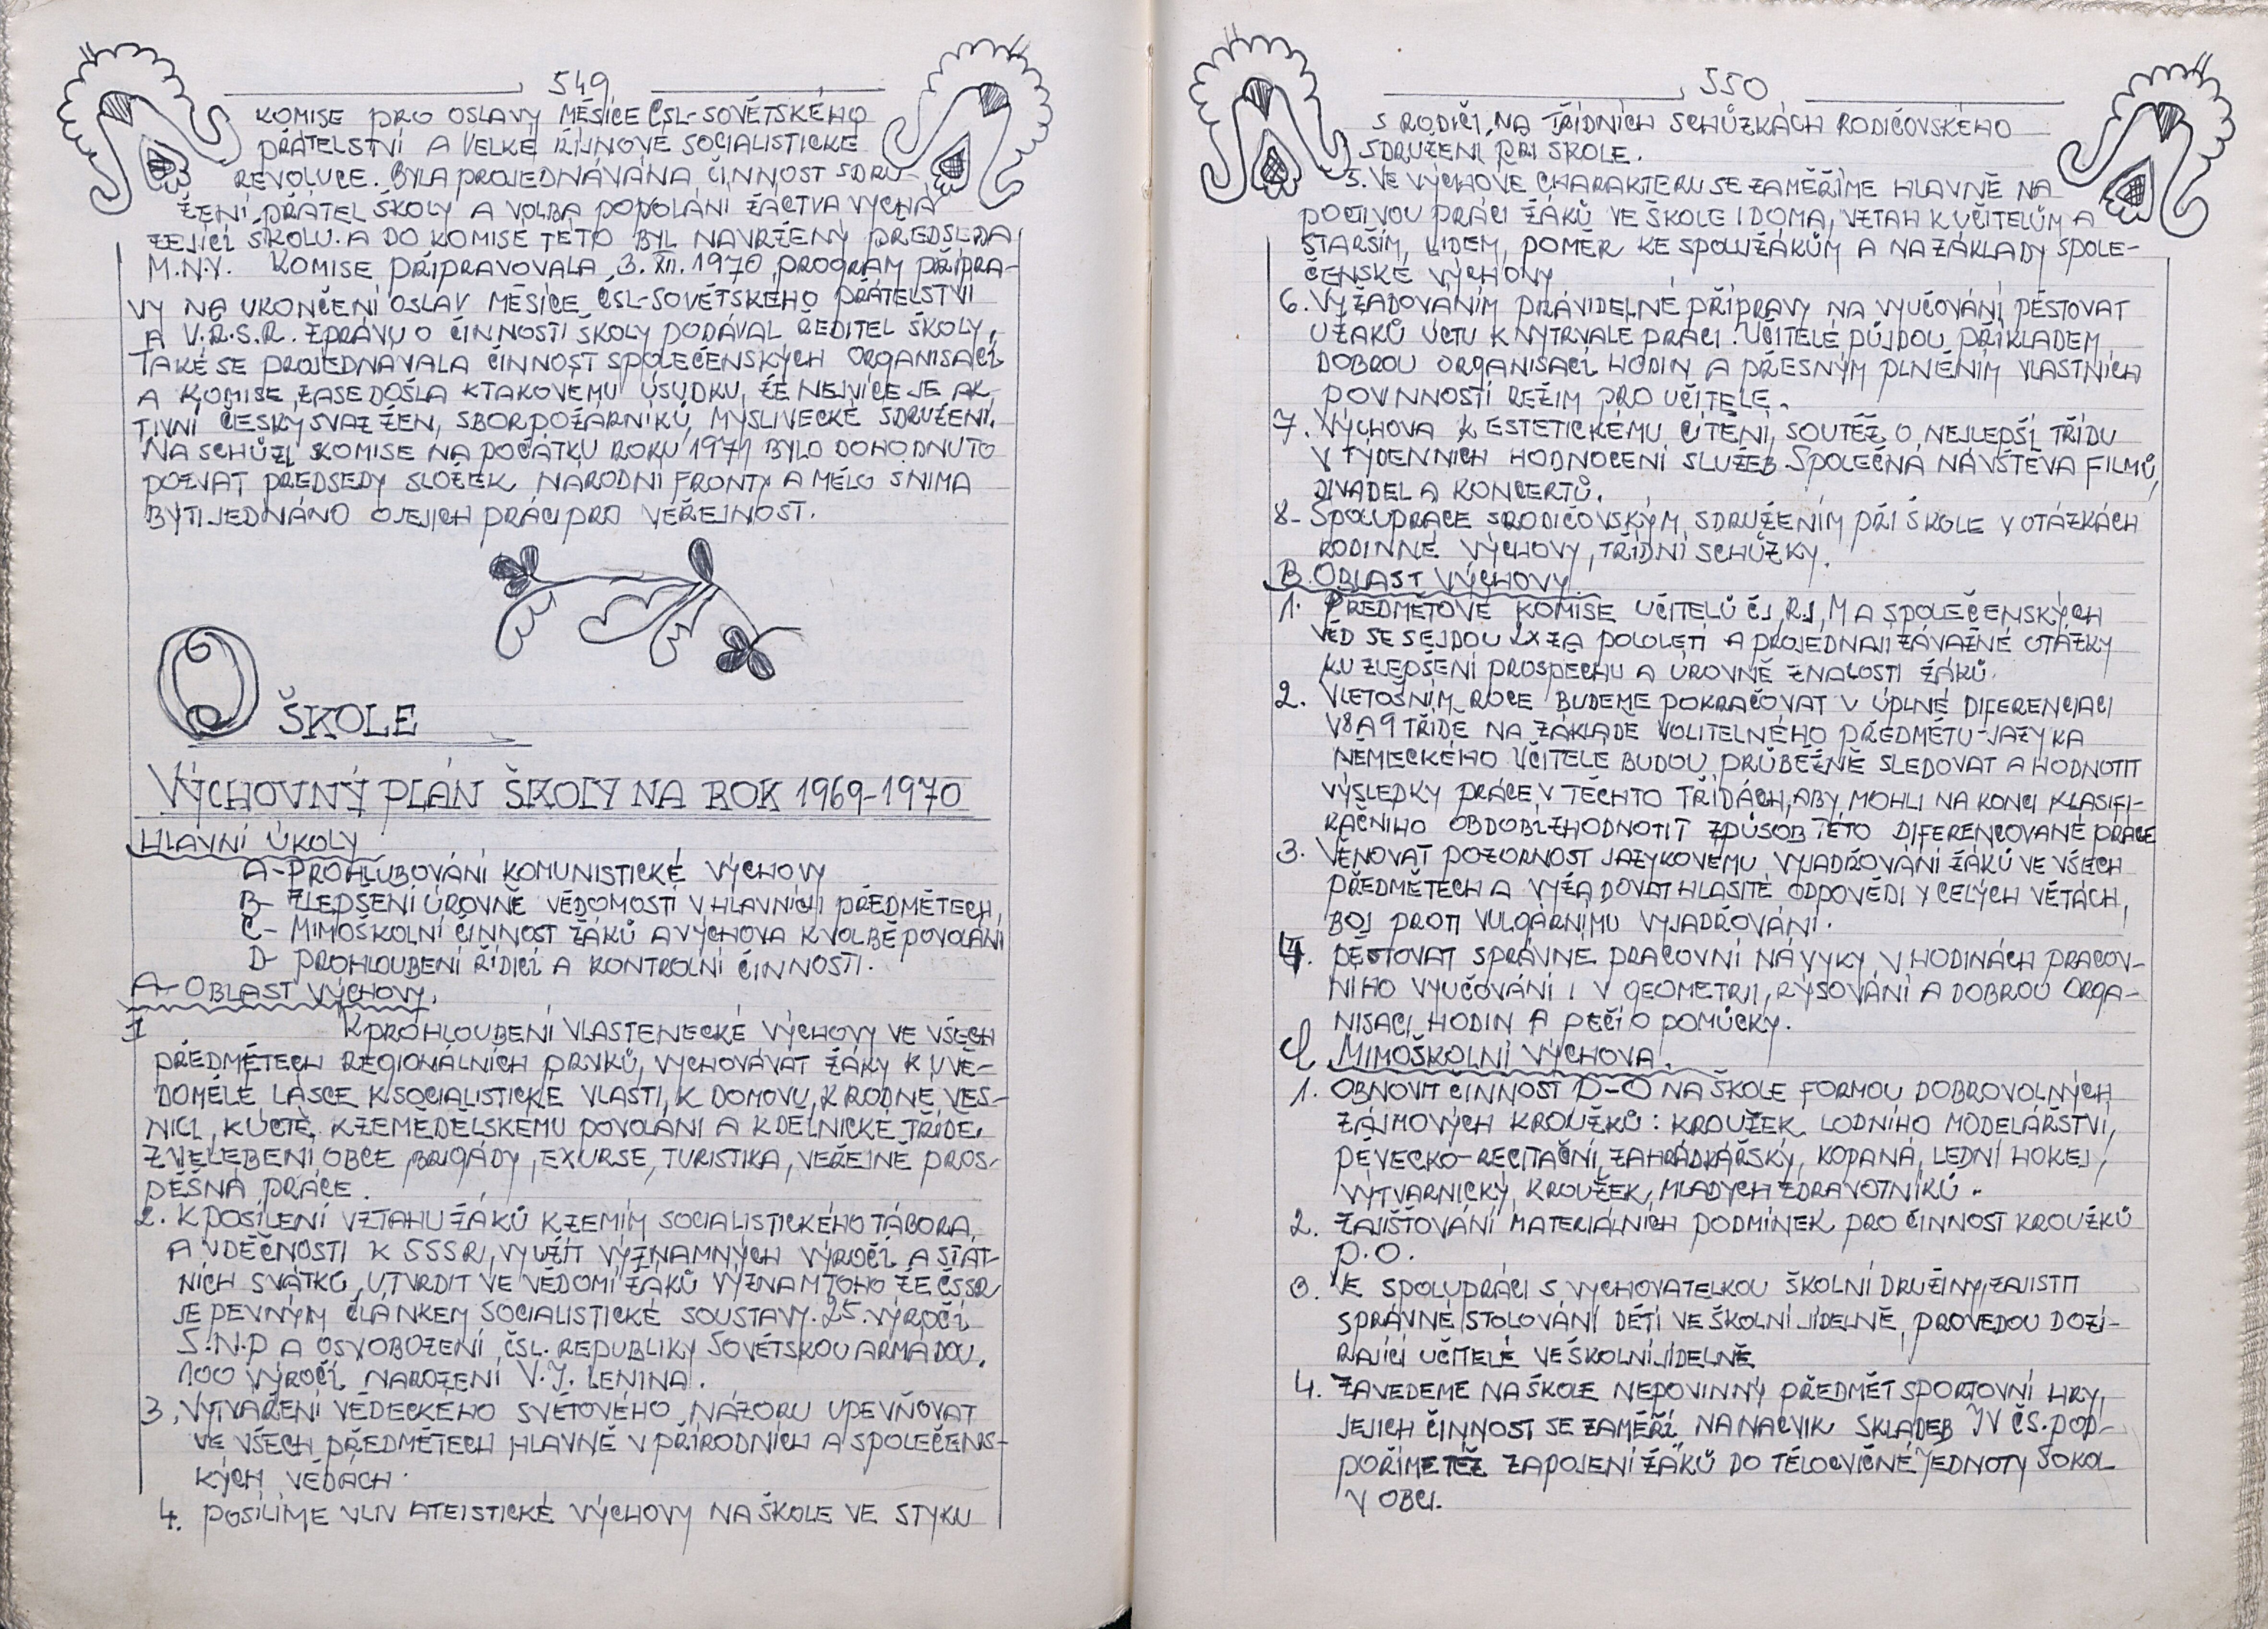 549
KOMISE PRO OSLAVY MĚSÍCE ČSL-SOVĚTSKÉHO
PŘÁTELSTVÍ A VELKÉ ŘÍJNOVÉ SOCIALISTICKÉ
REVOLUCE. BYLA PROJEDNÁVÁNA ČINNOST SDRU-
ŽENÍ PŘÁTEL ŠKOLY A VOLBA POVOLÁNÍ ŽACTVA VYCHÁ
ZEJÍCÍ ŠKOLU. A DO KOMISE TÉTO BYL NAVRŽENÝ PŘEDSEDA
M.N.V. KOMISE PŘIPRAVOVALA 3. XII. 1970 PROGRAM PŘÍPRA-
VY NA UKONČENÍ OSLAV MĚSÍCE ČSL-SOVĚTSKÉHO PŘÁTELSTVÍ
A V.Ř.S.R. ZPRÁVU O ČINNOSTI ŠKOLY PODÁVAL ŘEDITEL ŠKOLY.
TAKÉ SE PROJEDNÁVALA ČINNOST SPOLEČENSKÝCH ORGANISACÍ
A KOMISE ZASE DOŠLA K TAKOVÉMU ÚSUDKU, ŽE NEJVÍCE JE AK
TIVNÍ ČESKÝ SVAZ ŽEN, SBOR POŽÁRNÍKŮ, MYSLIVECKÉ SDRUŽENÍ.
NA SCHŮZI KOMISE NA POČÁTKU ROKU 1971 BYLO DOHODNUTO
POZVAT PŘEDSEDY SLOŽEK NÁRODNÍ FRONTY A MĚLO S NIMA
BÝTI JEDNÁNO O JEJICH PRÁCI PRO VEŘEJNOST.
O ŠKOLE
VÝCHOVNÝ PLÁN ŠKOLY NA ROK 1969-1970
HLAVNÍ ÚKOLY
A-PROHLUBOVÁNÍ KOMUNISTICKÉ VÝCHOVY
B- ZLEPŠENÍ ÚROVNĚ VĚDOMOSTÍ V HLAVNÍCH PŘEDMĚTECH,
C- MIMOŠKOLNÍ ČINNOST ŽÁKŮ A VÝCHOVA K VOLBĚ POVOLÁNÍ
D- PROHLOUBENÍ ŘÍDÍCÍ A KONTROLNÍ ČINNOSTI.
A- OBLAST VÝCHOVY.
1 K PROHLOUBENÍ VLASTENECKÉ VÝCHOVY VE VŠECH
PŘEDMĚTECH REGIONÁLNÍCH PRVKŮ, VYCHOVÁVAT ŽÁKY K UVĚ-
DOMĚLÉ LÁSCE K SOCIALISTICKÉ VLASTI, K DOMOVU, K RODNÉ VES-
NICI, K ÚCTĚ, K ZEMĚDĚLSKÉMU POVOLÁNÍ A K DĚLNICKÉ TŘÍDĚ.
ZVELEBENÍ OBCE, BRIGÁDY, EXURSE, TURISTIKA, VEŘEJNĚ PROS-
PĚŠNÁ PRÁCE.
2. K POSÍLENÍ VZTAHU ŽÁKŮ K ZEMÍM SOCIALISTICKÉHO TÁBORA
A VDĚČNOSTI K SSSR, VYUŽÍT VÝZNAMNÝCH VÝROČÍ A STÁT-
NÍCH SVÁTKŮ, UTVRDIT VE VĚDOMÍ ŽÁKŮ VÝZNAM TOHO ŽE ČSSR
JE PEVNÝM ČLÁNKEM SOCIALISTICKÉ SOUSTAVY. 25. VÝROČÍ
S.N.P A OSVOBOZENÍ ČSL. REPUBLIKY SOVĚTSKOU ARMÁDOU.
100 VÝROČÍ NAROZENÍ V.J. LENINA.
3. VYTVÁŘENÍ VĚDECKÉHO SVĚTOVÉHO NÁZORU UPEVŇOVAT
VE VŠECH PŘEDMĚTECH HLAVNĚ V PŘÍRODNÍCH A SPOLEČENS-
KÝCH VĚDÁCH.
4. POSÍLÍME VLIV ATEISTICKÉ VÝCHOVY NA ŠKOLE VE STYKU
550
S RODIČI, NA TŘÍDNÍCH SCHŮZKÁCH RODIČOVSKÉHO
SDRUŽENÍ PŘI ŠKOLE.
5. VE VÝCHOVĚ CHARAKTERU SE ZAMĚŘÍME HLAVNĚ NA
POCTIVOU PRÁCI ŽÁKŮ VE ŠKOLE I DOMA, VZTAH K UČITELŮM A
STARŠÍM, LIDEM, POMĚR KE SPOLUŽÁKŮM A NA ZÁKLADY SPOLE-
ČENSKÉ VÝCHOVY
6. VYŽADOVÁNÍM PRAVIDELNÉ PŘÍPRAVY NA VYUČOVÁNÍ PĚSTOVAT
U ŽÁKŮ ÚCTU K VYTRVALÉ PRÁCI. UČITELÉ PŮJDOU PŘÍKLADEM
DOBROU ORGANISACÍ HODIN A PŘESNÝM PLNĚNÍM VLASTNÍCH
POVINNOSTÍ REŽIM PRO UČITELE.
7. VÝCHOVA K ESTETICKÉMU CÍTĚNÍ, SOUTĚŽ O NEJLEPŠÍ TŘÍDU
V TÝDENNÍCH HODNOCENÍ SLUŽEB. SPOLEČNÁ NÁVŠTĚVA FILMŮ,
DIVADEL A KONCERTŮ.
8- SPOLUPRÁCE S RODIČOVSKÝM SDRUŽENÍM PŘI ŠKOLE V OTÁZKÁCH
RODINNÉ VÝCHOVY, TŘÍDNÍ SCHŮZKY.
B. OBLAST VÝCHOVY
1. PŘEDMĚTOVÉ KOMISE UČITELŮ ČJ, RJ, M A SPOLEČENSKÝCH
VĚD SE SEJDOU 2X ZA POLOLETÍ A PROJEDNAJÍ ZÁVAŽNÉ OTÁZKY
KU ZLEPŠENÍ PROSPĚCHU A ÚROVNĚ ZNALOSTÍ ŽÁKŮ.
2. V LETOŠNÍM ROCE BUDEME POKRAČOVAT V ÚPLNÉ DIFERENCIACI
V 8 A 9 TŘÍDĚ NA ZÁKLADĚ VOLITELNÉHO PŘEDMĚTU-JAZYKA
NĚMECKÉHO UČITELÉ BUDOU PRŮBĚŽNĚ SLEDOVAT A HODNOTIT
VÝSLEDKY PRÁCE V TĚCHTO TŘÍDÁCH, ABY MOHLI NA KONCI KLASIFI-
KAČNÍHO OBDOBÍ ZHODNOTIT ZPŮSOB TÉTO DIFERENCOVANÉ PRÁCE
3. VĚNOVAT POZORNOST JAZYKOVÉMU VYJADŘOVÁNÍ ŽÁKŮ VE VŠECH
PŘEDMĚTECH A VYŽADOVAT HLASITÉ ODPOVĚDI V CELÝCH VĚTÁCH,
BOJ PROTI VULGÁRNÍMU VYJADŘOVÁNÍ.
4. PĚSTOVAT SPRÁVNÉ PRACOVNÍ NÁVYKY V HODINÁCH PRACOV-
NÍHO VYUČOVÁNÍ I V GEOMETRII, RÝSOVÁNÍ A DOBROU ORGA-
NISACI HODIN A PÉČÍ O POMŮCKY.
C. MIMOŠKOLNÍ VÝCHOVA.
1. OBNOVIT ČINNOST P-O NA ŠKOLE FORMOU DOBROVOLNÝCH
ZÁJMOVÝCH KROUŽKŮ: KROUŽEK LODNÍHO MODELÁŘSTVÍ,
PĚVECKO-RECITAČNÍ, ZAHRÁDKÁŘSKÝ, KOPANÁ, LEDNÍ HOKEJ,
VÝTVARNICKÝ KROUŽEK, MLADÝCH ZDRAVOTNÍKŮ.
2. ZAJIŠŤOVÁNÍ MATERIÁLNÍCH PODMÍNEK PRO ČINNOST KROUŽKŮ
P.O.
3. VE SPOLUPRÁCI S VYCHOVATELKOU ŠKOLNÍ DRUŽINY, ZAJISTIT
SPRÁVNÉ STOLOVÁNÍ DĚTÍ VE ŠKOLNÍ JÍDELNĚ, PROVEDOU DOZÍ-
RAJÍCÍ UČITELÉ VE ŠKOLNÍ JÍDELNĚ
4. ZAVEDEME NA ŠKOLE NEPOVINNÝ PŘEDMĚT SPORTOVNÍ HRY,
JEJICH ČINNOST SE ZAMĚŘÍ NA NÁCVIK SKLADEB IV ČS. POD-
POŘÍME TÉŽ ZAPOJENÍ ŽÁKŮ DO TĚLOCVIČNÉ JEDNOTY SOKOL
V OBCI.